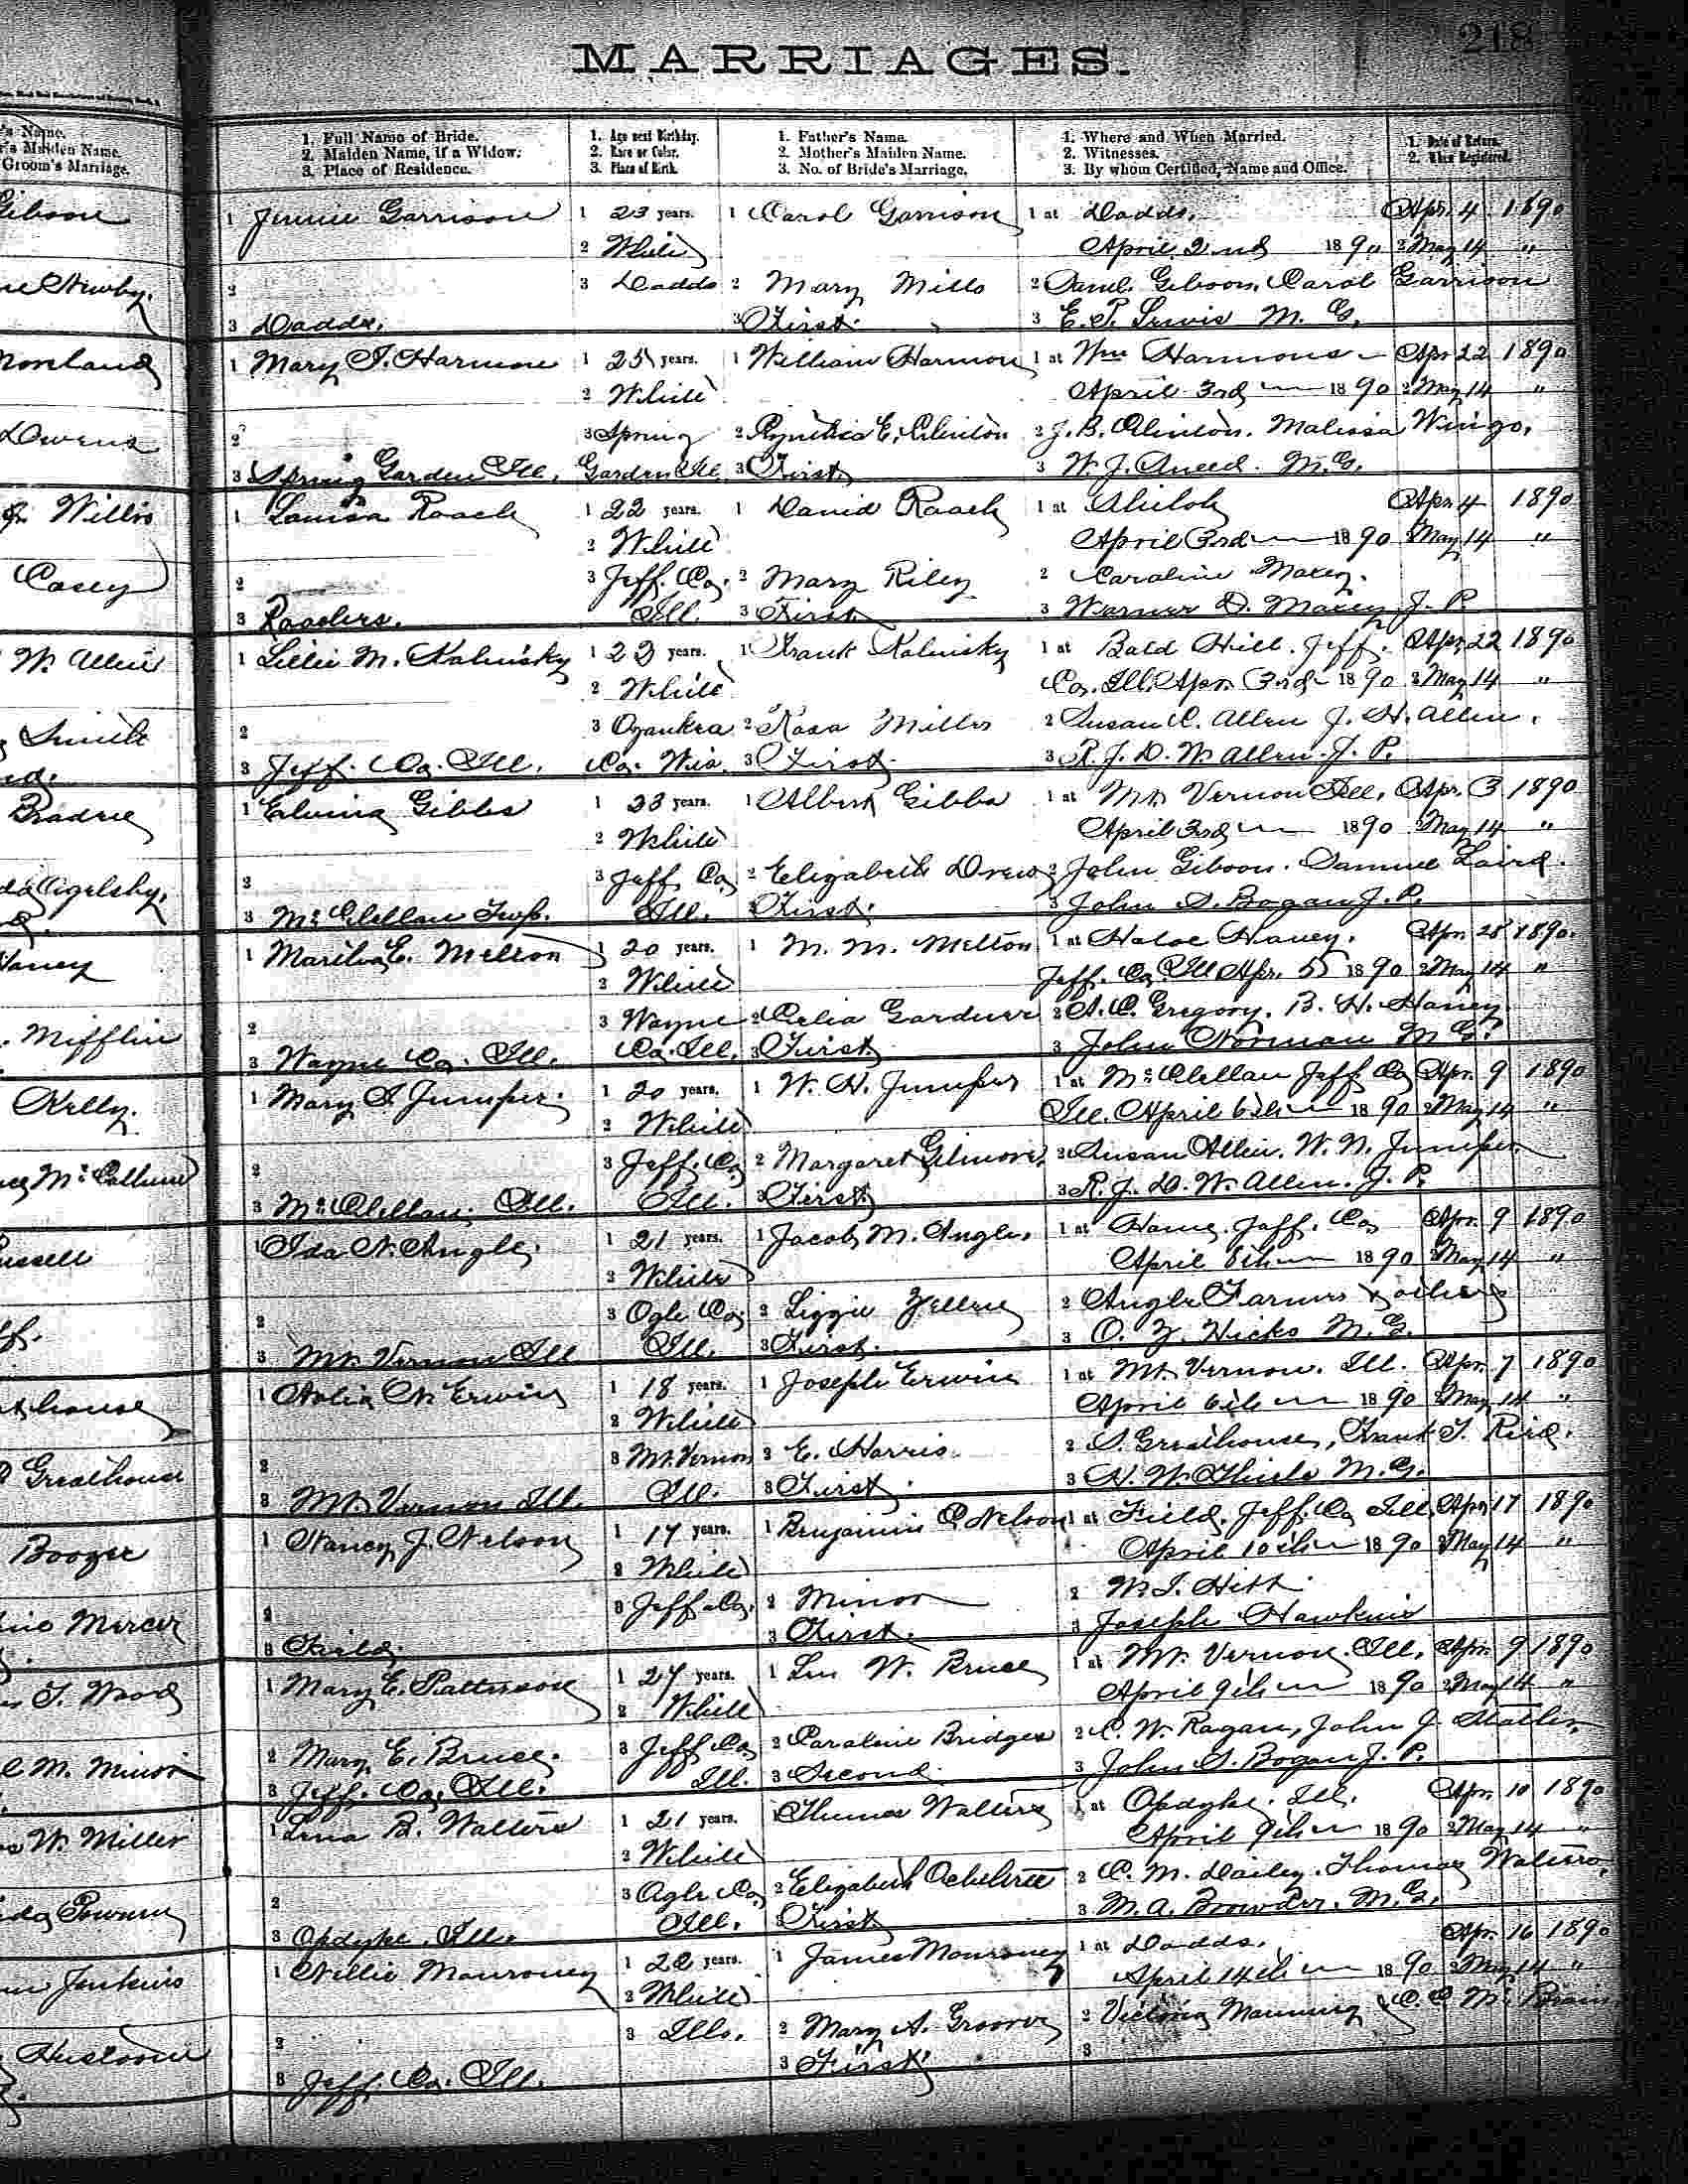 218
MARRIAGES.
's Name.
r's Maiden Name.
Groom's Marriage.
1. Full Name of Bride.
2. Maiden Name, if a Widow.
3. Place of Residence.
1. Age next Birthday.
2. Race or Color.
3. Place of Birth.
1. Father's Name.
2. Mother's Maiden Name.
3. No. of Bride's Marriage.
1. Where and When Married.
2. Witnesses.
3. By whom Certified, Name and Office.
1. Date of Return.
2. When Registered.
Gibson 1 Jennie Garrison 1 23 years. 1 Carol Garrison 1 at Dodds. Apr. 4 1890
2 White April 2nd 1890 2 May 14 "
Newby. 2 3 Dodds 2 Mary Mills 2 Saml. Gibson, Carol Garrison
3 Dodds. 3 First. 3 E. P. Lewis M. G.
1 Mary J. Harmon 1 25 years. 1 William Harmon 1 at Wm Harmons Apr 22 1890
2 White April 3rd 1890 2 May 14 "
Owens 2 3 Spring 2 Cynthia E. Clinton 2 J. B. Clinton. Malissa Wingo.
3 Spring Garden Ill. Garden Ill. 3 First 3 W. J. Sneed. M. G.
Willis 1 Louisa Roach 1 22 years. 1 David Roach 1 at Shiloh Apr 4 1890
2 White April 3rd 1890 2 May 14 "
Casey 2 3 Jeff. Co. 2 Mary Riley 2 Caroline Maxey.
3 Roachs. Ill. 3 First 3 Warner D. Maxey J. P.
W. Allen 1 Lillie M. Kalinsky 1 23 years. 1 Frank Kalinsky 1 at Bald Hill. Jeff. Apr. 22 1890
2 White Co. Ill. Apr. 3rd 1890 2 May 14 "
Smith 2 3 Ozaukra 2 Rosa Miller 2 Susan C. Allen J. H. Allen.
3 Jeff. Co. Ill. Co. Wis. 3 First. 3 R. J. D. W. Allen. J. P.
1 Elvina Gibbs 1 23 years. 1 Albert Gibbs 1 at Mt. Vernon Ill. Apr. 3 1890
2 White April 3rd 1890 2 May 14 "
2 3 Jeff Co 2 Elizabeth Drew 2 John Gibson. Samuel Laird.
3 McClellan Twp. Ill. 3 First. 3 John S. Bogan J. P.
Haney 1 Martha E. Melton 1 20 years. 1 M. M. Melton 1 at Haloe Haney. Apr. 28 1890.
2 White Jeff. Co. Ill Apr. 5 1890 2 May 14 "
Mifflin 2 3 Wayne 2 Celia Gardner 2 A. C. Gregory. B. H. Haney
3 Wayne Co. Ill. Co. Ill. 3 First 3 John Norman M G.
Kelly. 1 Mary I Juniper. 1 20 years. 1 W. H. Juniper 1 at McClellan Jeff Co Apr. 9 1890
2 White Ill. April 6th 1890 2 May 14 "
McCallum 2 3 Jeff. Co 2 Margaret Gilmore. 2 Susan Allen. W. N. Juniper.
3 McClellan. Ill. Ill. 3 First 3 R. J. D. W. Allen. J. P.
1 Ida N. Angle. 1 21 years. 1 Jacob M. Angle. 1 at Home. Jeff. Co Apr. 9 1890
2 White April 6th 1890 2 May 14 "
2 3 Ogle Co 2 Lizzie 2 Angle Farmer & others
3 Mt. Vernon Ill Ill. 3 First. 3 O. Z. Hicks M. G.
1 N. Erwin 1 18 years. 1 Joseph Erwin 1 at Mt. Vernon. Ill. Apr. 7 1890
2 White April 6th 1890 2 May 14 "
Greathouse 2 3 Mt. Vernon 2 E. Harris 2 S. Greathouse, Frank T. Reid.
3 Mt. Vernon Ill. Ill. 3 First. 3 M. G.
Booger 1 Nancy J. Nelson 1 17 years. 1 Benjamin C Nelson 1 at Field. Jeff. Co Ill. Apr. 17 1890
2 White April 10th 1890 2 May 14 "
Mercer 2 3 Jeff. Co. 2 Minor 2 W. T. Hitt.
3 Field. 3 First. 3 Joseph Hawkins
T. Wood 1 Mary E. Patterson 1 27 years. 1 W. Bruce 1 at Mt. Vernon. Ill. Apr. 9 1890
2 White April 9th 1890 2 May 14 "
M. Minor 2 Mary E. Bruce. 3 Jeff Co 2 Caroline Bridges 2 C. W. Ragan, John J.
3 Jeff. Co. Ill. Ill. 3 Second. 3 John S. Bogan J. P.
W. Miller 1 Lena B. Walters 1 21 years. 1 Thomas Walters 1 at Opdyke. Ill. Apr. 10 1890
2 White April 9th 1890 2 May 14 "
2 3 Ogle Co 2 Elizabeth Ocheltree 2 C. M. Dailey. Thomas Walters.
3 Opdyke. Ill. Ill. 3 First 3 M. A. Browder. M. G.
Jenkins 1 Nellie Mouroney 1 22 years. 1 James Mouroney 1 at Dodds. Apr. 16 1890
2 White April 14th 1890 2 May 14 "
2 3 Ills. 2 Mary A. Groover 2 Manning
3 Jeff. Co. Ill. 3 First 3